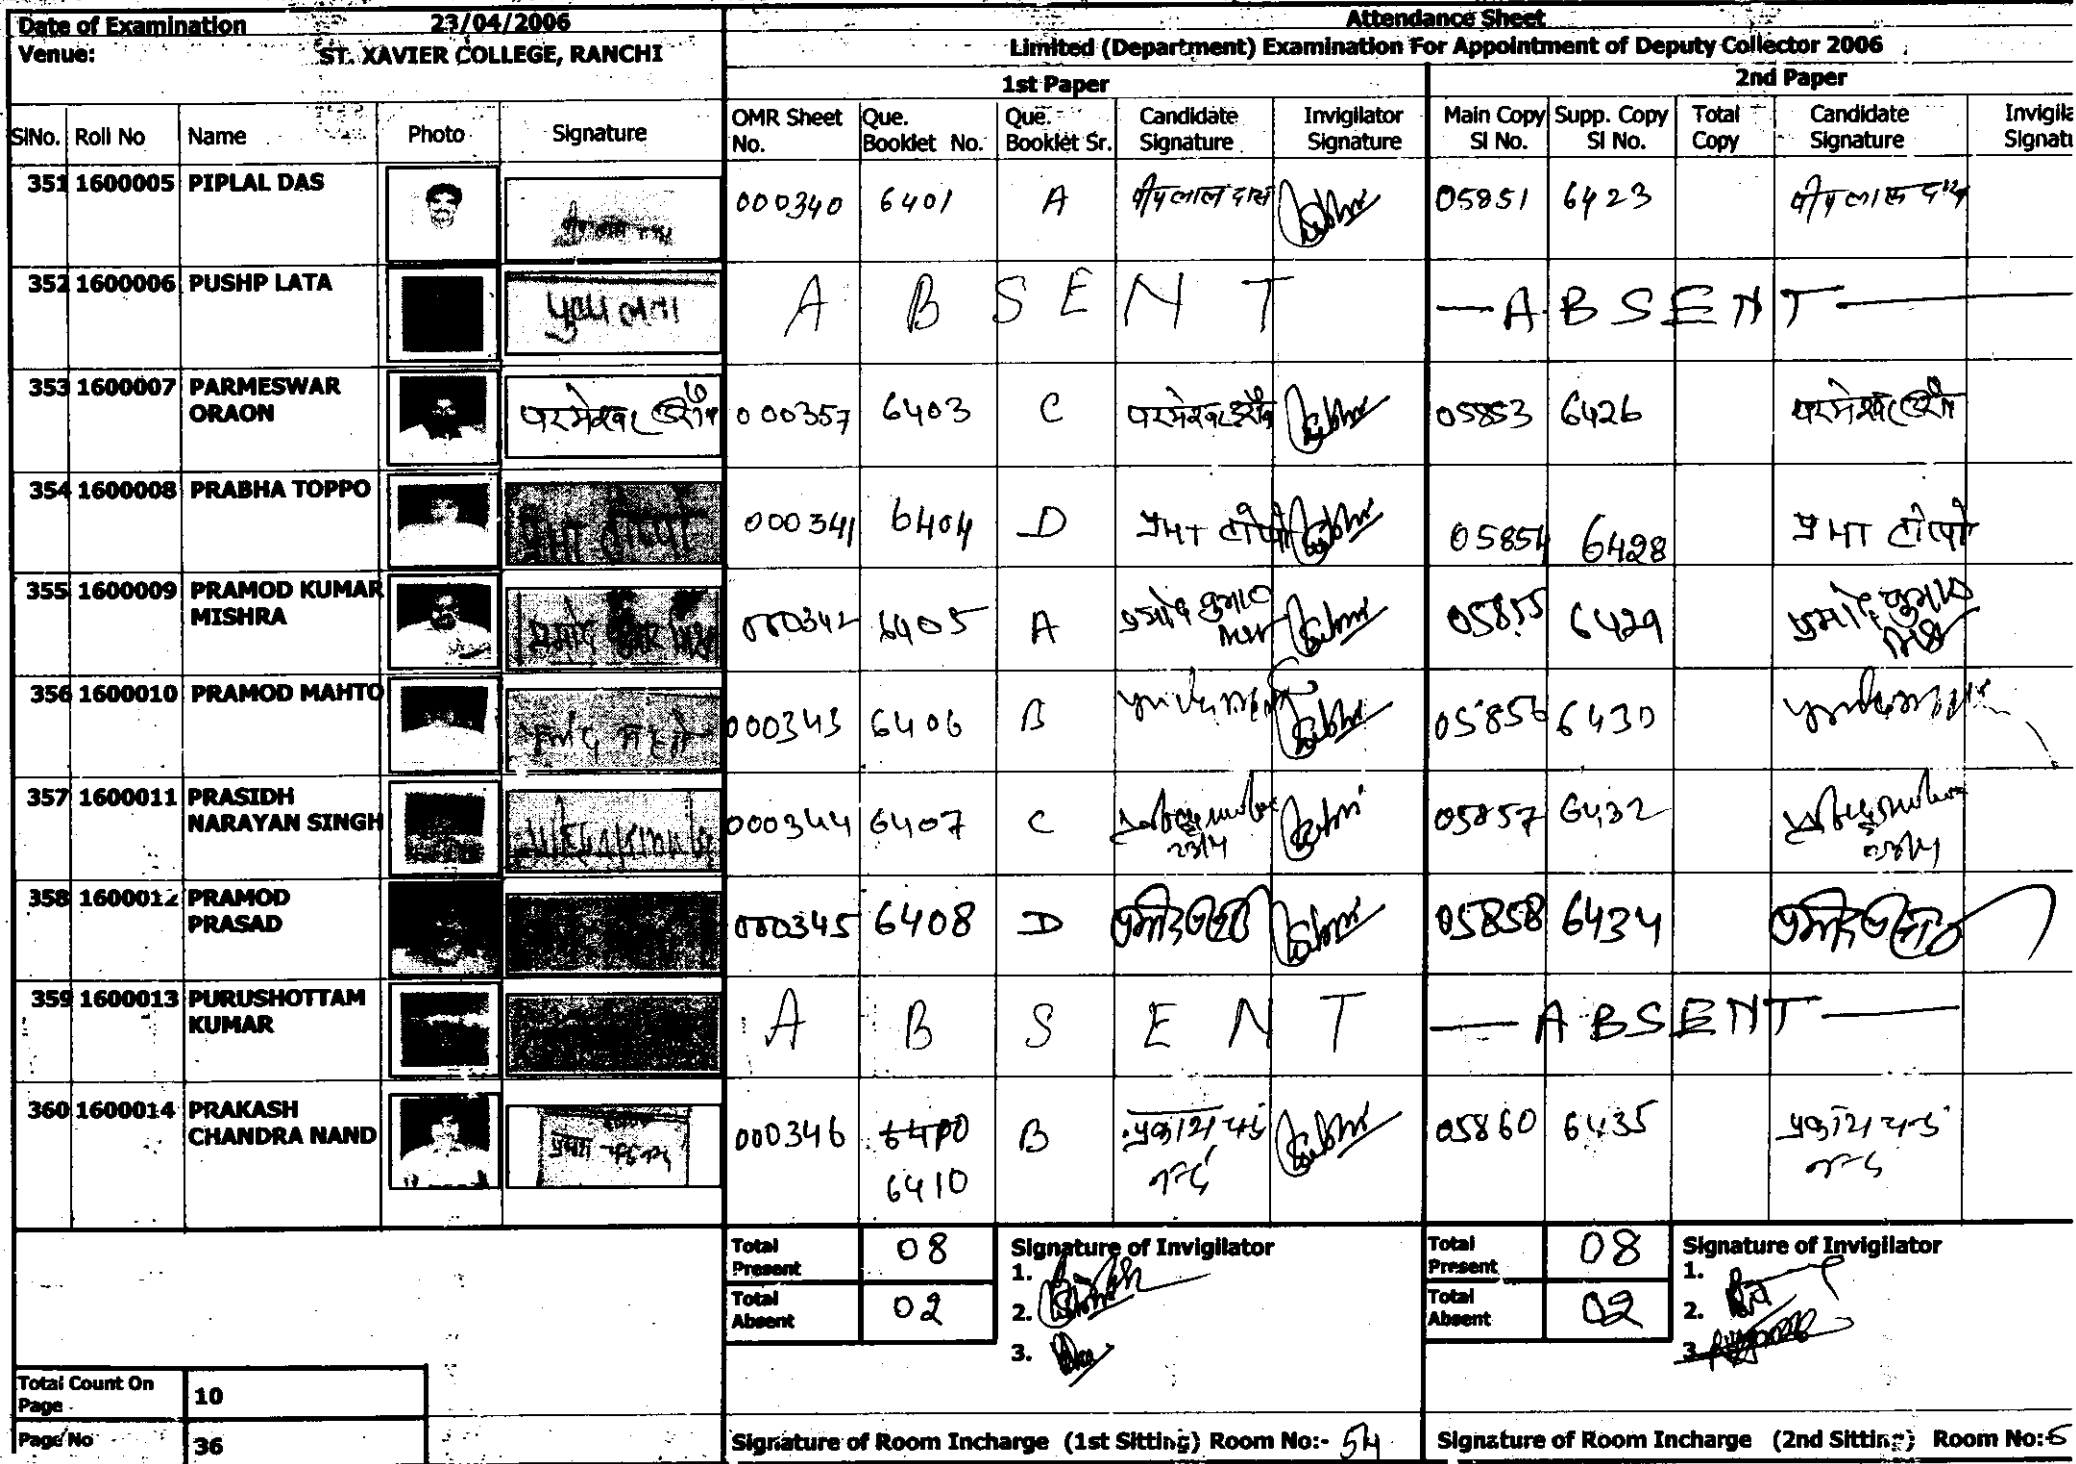 Date of Examination 23/04/2006 Attendance Sheet
Venue: ST. XAVIER COLLEGE, RANCHI Limited (Department) Examination For Appointment of Deputy Collector 2006
1st Paper 2nd Paper
SlNo. Roll No Name Photo Signature OMR Sheet No. Que. Booklet No. Que. Booklet Sr. Candidate Signature Invigilator Signature Main Copy Sl No. Supp. Copy Sl No. Total Copy Candidate Signature
351 1600005 PIPLAL DAS 000340 6401 A पीपलाल दास 05851 6423 पीपलाल दास
352 1600006 PUSHP LATA पुष्प लता A B S E N T — A B S E N T —
353 1600007 PARMESWAR ORAON परमेश्वर उराँव 000357 6403 C परमेश्वर उराँव 05853 6426 परमेश्वर उराँव
354 1600008 PRABHA TOPPO प्रभा टोप्पो 000341 6404 D प्रभा टोप्पो 05854 6428 प्रभा टोप्पो
355 1600009 PRAMOD KUMAR MISHRA 000342 6405 A प्रमोद कुमार 05855 6429 प्रमोद कुमार मिश्र
356 1600010 PRAMOD MAHTO 000343 6406 B 05856 6430
357 1600011 PRASIDH NARAYAN SINGH 000344 6407 C 23/4 05857 6432
358 1600012 PRAMOD PRASAD 000345 6408 D 05858 6434
359 1600013 PURUSHOTTAM KUMAR A B S E N T — A B S E N T —
360 1600014 PRAKASH CHANDRA NAND 000346 6410 B प्रकाश चन्द्र नन्द 05860 6435 प्रकाश चन्द्र नन्द
Total Present 08 Signature of Invigilator Total Present 08 Signature of Invigilator
1. 1.
Total Absent 02 2. Total Absent 02 2.
3. 3.
Total Count On Page 10
Page No 36 Signature of Room Incharge (1st Sitting) Room No:- 54 Signature of Room Incharge (2nd Sitting) Room No: